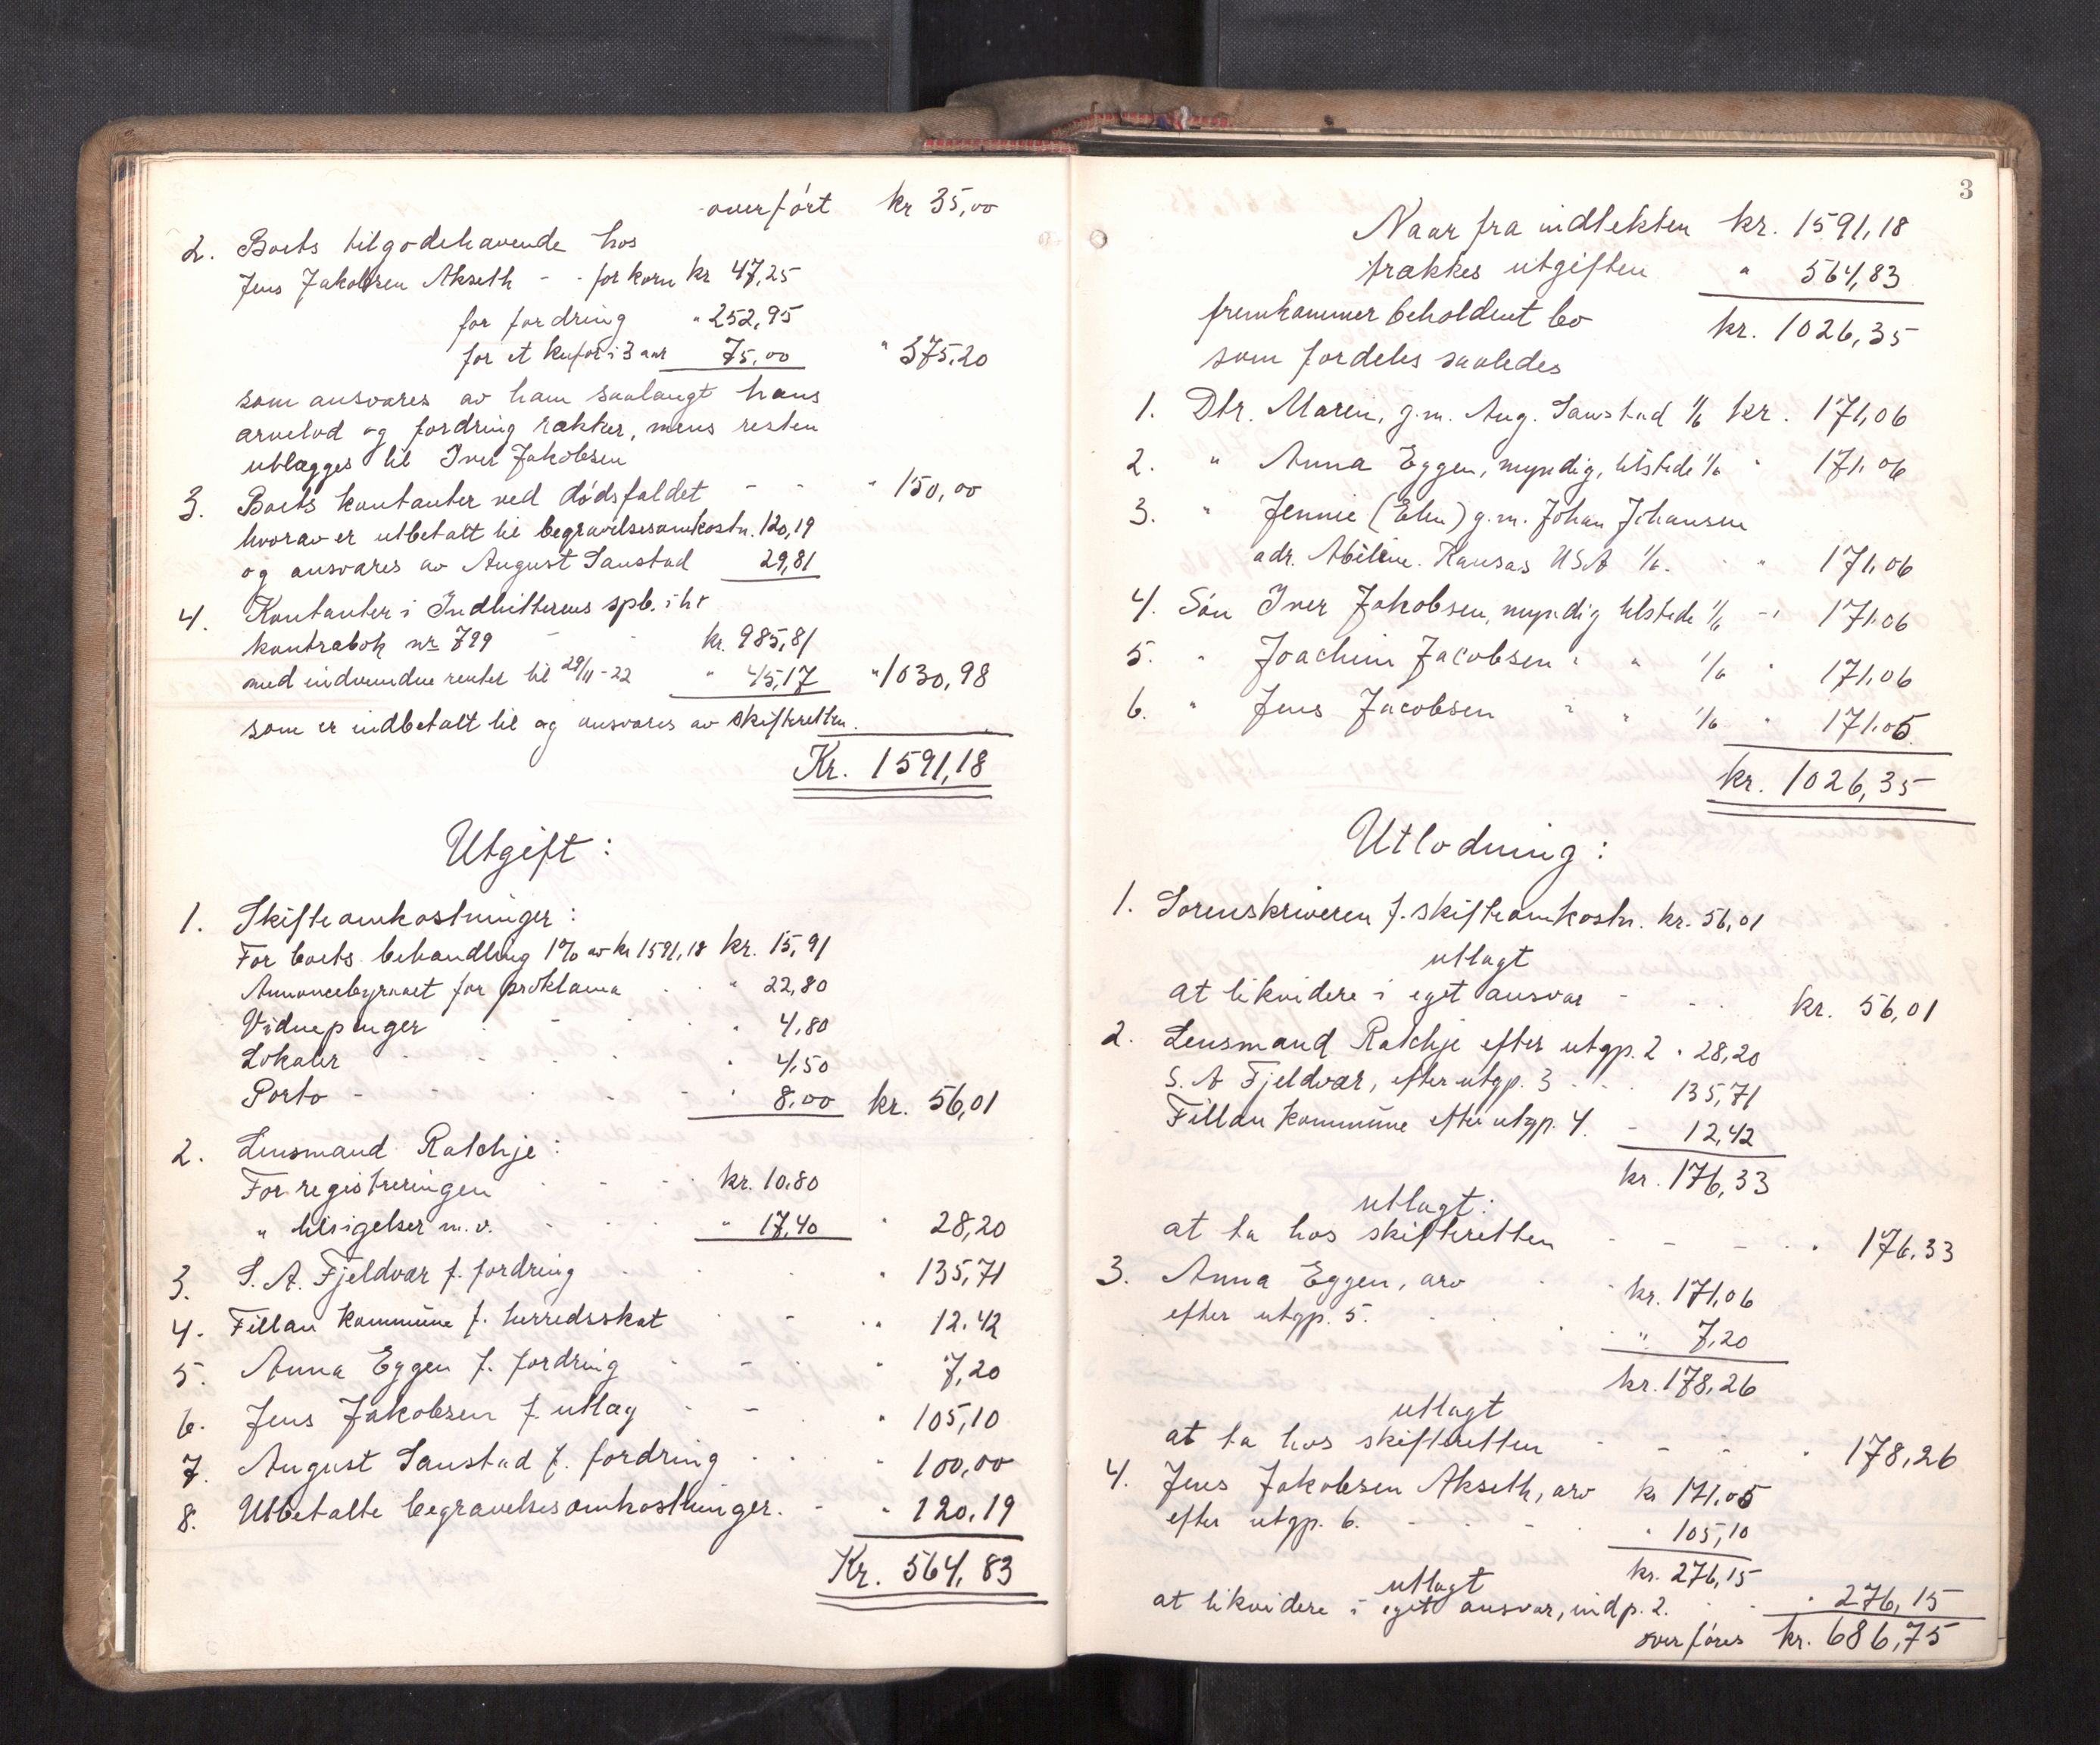 overført kr 35,00
2. Boets tilgodehavende hos
Jens Jakobsen Akseth - - for korn kr 47,25
for fordring " 252,95
for et kufor i 3 aar 75,00 " 375,20
som ansvares av ham saalangt hans
arvelod og fordring rækker, mens resten
utlægges til Iver Jakobsen
3. Boets kontanter ved dødsfaldet - - " 150,00
hvorav er utbetalt til begravelsesomkostn. 120,19
og ansvares av August Sanstad 29,81
4. Kontanter i Indhitterens spb. iht
kontrabok nr 799 - - kr. 985,81
med indvundne renter til 29/11-22 " 45,17 " 1030,98
som er indbetalt til og ansvares av skifteretten.
Kr. 1591,18
Utgift:
1. Skifteomkostninger:
For boets behandling 1% av kr 1591,18 kr. 15,91
Annoncebyraaet for proklama . . " 22,80
Vidnepenger . - . . " 4,80
Lokaler . - - . " 4,50
Porto - . . - " 8,00 kr. 56,01
2. Lensmand Ratchje:
For registreringen . . - kr. 10.80
" tilsigelser m.v. - . . " 17,40 " 28,20
3. S. A. Fjeldvær f. fordring . . . " 135,71
4. Fillan kommune f. herredsskat . - . " 12.42
5. Anna Eggen f. fordring . - . " 7,20
6. Jens Jakobsen f. utlæg . - . " 105,10
7. August Sanstad f. fordring . . " 100,00
8. Utbetalte begravelsesomkostninger. - " 120,19
Kr. 564,83
3
Naar fra indtekten kr. 1591,18
trækkes utgiften " 564,83
fremkommer beholdent bo kr. 1026,35
som fordeles saaledes
1. Dtr. Maren, g.m. Aug. Sanstad 1/6 kr. 171,06
2. " Anna Eggen, myndig, tilstede 1/6 " 171,06
3. " Jennie (Elen) g.m. Johan Johansen
adr. Abilene. Kansas USA 1/6. . " 171,06
4. Søn Iver Jakobsen, myndig tilstede 1/6 - " 171,06
5. " Joachim Jacobsen " " 1/6 " 171,06
6. " Jens Jacobsen " " 1/6 " 171,05
kr. 1026,35
Utlodning:
1. Sorenskriveren f. skifteomkostn. kr. 56,01
utlagt
at likvidere i eget ansvar - - . kr. 56,01
2. Lensmand Ratchje efter utgp. 2 " 28,20
S. A Fjeldvær, efter utgp. 3 - - 135,71
Fillan kommune efter utgp. 4. - 12,42
kr. 176,33
utlagt:
at ta hos skifteretten - - - . " 176,33
3. Anna Eggen, arv . . kr. 171,06
efter utgp. 5. . . . " 7,20
kr. 178,26
utlagt
at ta hos skifteretten - - - " 178,26
4. Jens Jakobsen Akseth, arv kr 171,05
efter utgp. 6. - - . " 105,10
kr. 276,15
utlagt
at likvidere i eget ansvar, indp. 2. . . " 276,15
overføres kr. 686,75